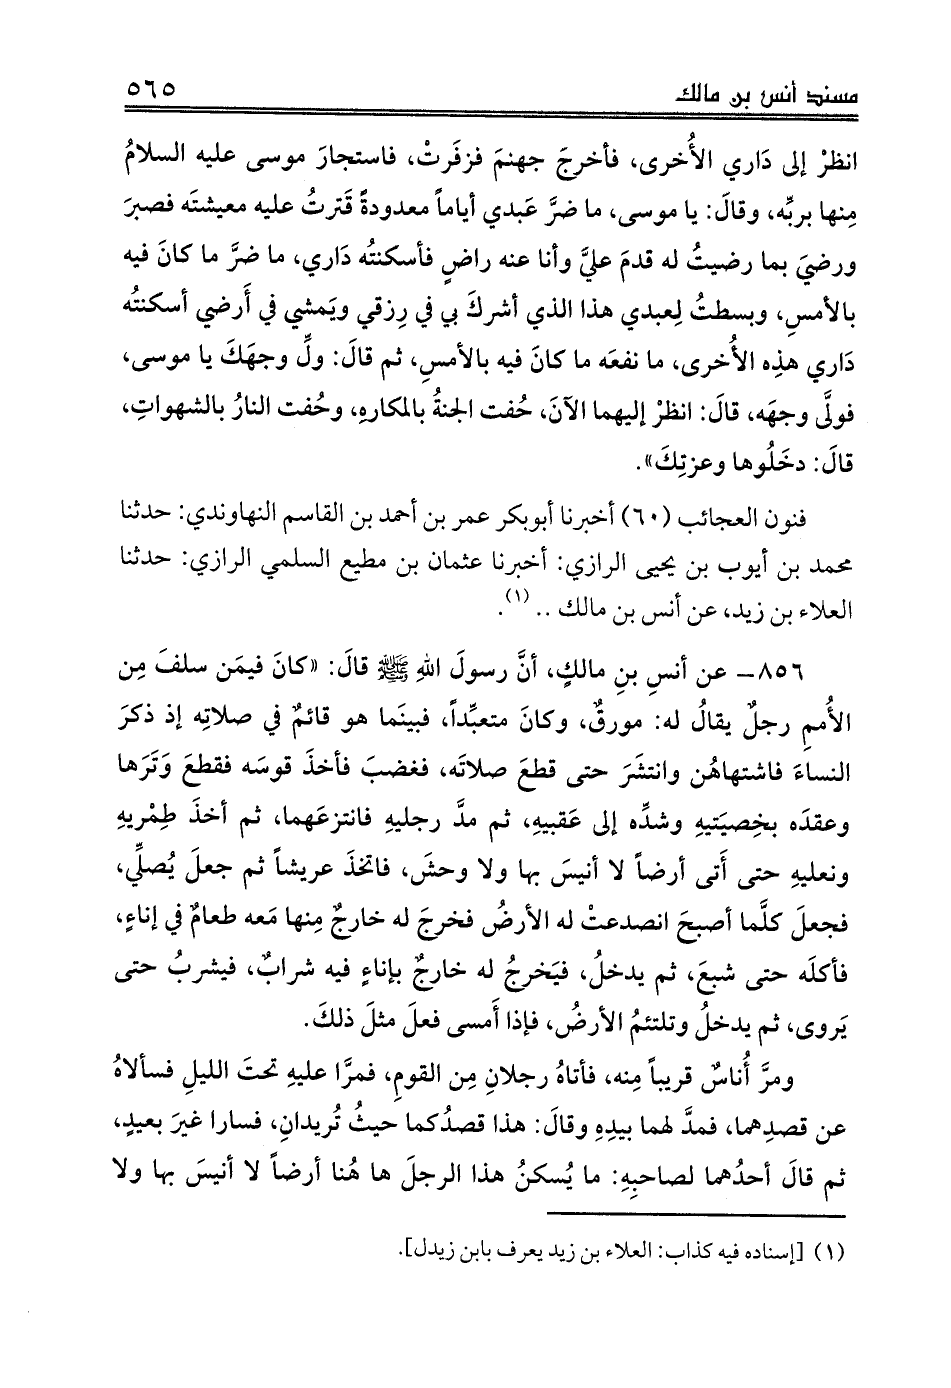 مسند أنس بن مالك ٥٦٥
انظرْ إلى دَاري الأُخرى، فأخرجَ جهنمَ فزفَرتْ، فاستجارَ موسى عليه السلامُ
مِنها بربِّه، وقالَ: يا موسى، ما ضرَّ عَبدي أياماً معدودةً قَترتُ عليه معيشتَه فصبرَ
ورضيَ بما رضيتُ له قدمَ عليَّ وأنا عنه راضٍ فأسكنتُه دَاري، ما ضرَّ ما كانَ فيه
بالأمسِ، وبسطتُ لِعبدي هذا الذي أشركَ بي في رِزقي ويَمشي في أَرضي أسكنتُه
دَاري هذِه الأُخرى، ما نفعَه ما كانَ فيه بالأمسِ، ثم قالَ: ولِّ وجهَكَ يا موسى،
فولَّى وجهَه، قالَ: انظرْ إليهما الآنَ، حُفت الجنةُ بالمكارهِ، وحُفت النارُ بالشهواتِ،
قالَ: دخَلُوها وعزتِكَ».
فنون العجائب (٦٠) أخبرنا أبوبكر عمر بن أحمد بن القاسم النهاوندي: حدثنا
محمد بن أيوب بن يحيى الرازي: أخبرنا عثمان بن مطيع السلمي الرازي: حدثنا
العلاء بن زيد، عن أنس بن مالك .. (١).
٨٥٦ـ عن أنسِ بنِ مالكٍ، أنَّ رسولَ اللهِ ﷺ قالَ: «كانَ فيمَن سلفَ مِن
الأُممِ رجلٌ يقالُ له: مورقٌ، وكانَ متعبِّداً، فبينَما هو قائمٌ في صلاتِه إذ ذكرَ
النساءَ فاشتهاهُن وانتشَرَ حتى قطعَ صلاتَه، فغضبَ فأخذَ قوسَه فقطعَ وَتَرَها
وعقدَه بخِصيَتيهِ وشدَّه إلى عَقبيهِ، ثم مدَّ رجليهِ فانتزعَهما، ثم أخذَ طِمْريهِ
ونعليهِ حتى أَتى أرضاً لا أنيسَ بها ولا وحشَ، فاتخذَ عريشاً ثم جعلَ يُصلِّي،
فجعلَ كلَّما أصبحَ انصدعتْ له الأرضُ فخرجَ له خارجٌ مِنها مَعه طعامٌ في إناءٍ،
فأكلَه حتى شبعَ، ثم يدخلُ، فيَخرجُ له خارجٌ بإناءٍ فيه شرابٌ، فيشربُ حتى
يَروى، ثم يدخلُ وتلتئمُ الأرضُ، فإذا أَمسى فعلَ مثلَ ذلكَ.
ومرَّ أُناسٌ قريباً مِنه، فأتاهُ رجلانِ مِن القومِ، فمرَّا عليهِ تحتَ الليلِ فسألاهُ
عن قصدِهما، فمدَّ لهما بيدِهِ وقالَ: هذا قصدُكما حيثُ تُريدانِ، فسارا غيرَ بعيدٍ،
ثم قالَ أحدُهما لصاحبِهِ: ما يُسكنُ هذا الرجلَ ها هُنا أرضاً لا أنيسَ بها ولا
(١) [إسناده فيه كذاب: العلاء بن زيد يعرف بابن زيدل].